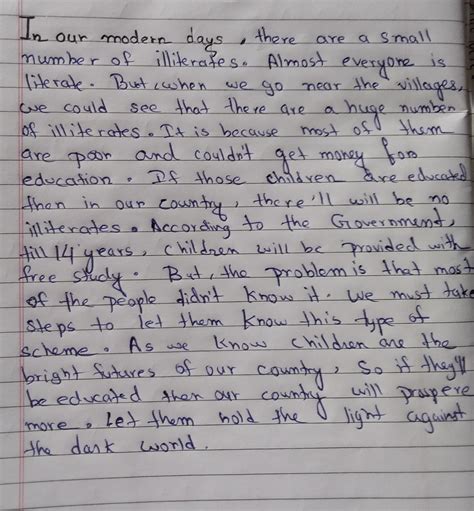 In our modern days, there are a small
number of illiterates. Almost everyone is
literate. But, when we go near the villages,
we could see that there are a huge number
of illiterates. It is because most of them
are poor and couldn't get money for
education. If those children are educated
then in our country, there'll will be no
illiterates. According to the Government,
till 14 years, children will be provided with
free study. But, the problem is that most
of the people didn't know it. we must take
steps to let them know this type of
scheme. As we know children are the
bright futures of our country, so if they'll
be educated then our country will prospere
more. Let them hold the light against
the dark world.